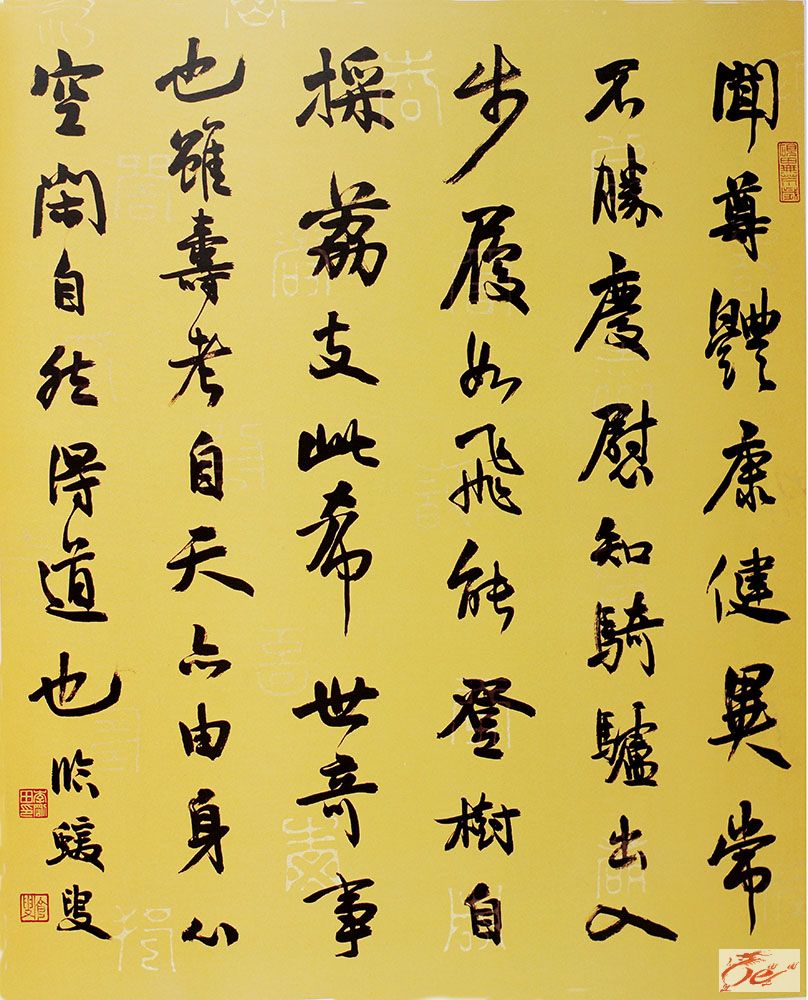 聞尊體康健異常
不勝慶慰知騎驢出入
步履如飛能登樹自
採荔支此希世奇事
也雖壽考自天亦由身心
空閑自然得道也臨
叟